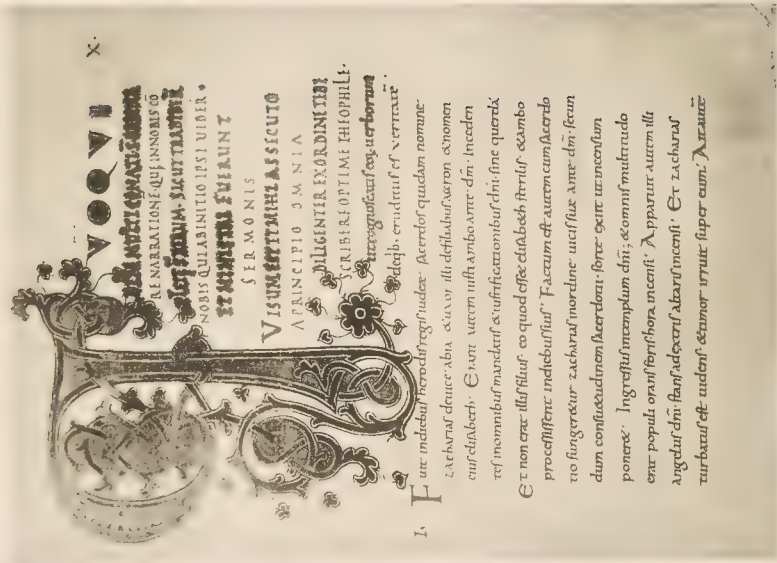 VOQVE · X ·
RENARRATIONE · QUE IN NOBIS CO
SICUT TRADIDER
NOBIS QUI AB INITIO IPSI VIDER ·
ET MINISTRI FUERUNT
SERMONIS
VISUM EST ET MIHI ASSECUTO
A PRINCIPIO OMNIA
DILIGENTER EX ORDINE TIBI
SCRIBERE OPTIME THEOPHILE ·
ut cognoscas eoꝝ uerborum
de qb· eruditus es ueritatē ·
I · Fuit indiebus herodis regis iudeę sacerdos quidam nomine
zacharias deuice abia & uxor illi defiliabus aaron & nomen
eius elisabeth · Erant autem iusti ambo ante dm̄ · Inceden
tes inomnibus mandatis & iustificationibus dni · sine querela
Et non erat illis filius · eo quod esset elisabeth sterilis · & ambo
processissent indiebus suis · Factum est autem cum sacerdo
tio fungeretur zacharias inordine uicis suę ante dm̄ · secun
dum consuetudinem sacerdotii · sorte exiit ut incensum
poneret · Ingressus intemplum dni ; & omnis multitudo
erat populi orans foris hora incensi · Apparuit autem illi
angelus dni · stans adextris altaris incensi · Et zacharias
turbatus est uidens · & timor irruit super eum · Ait autē